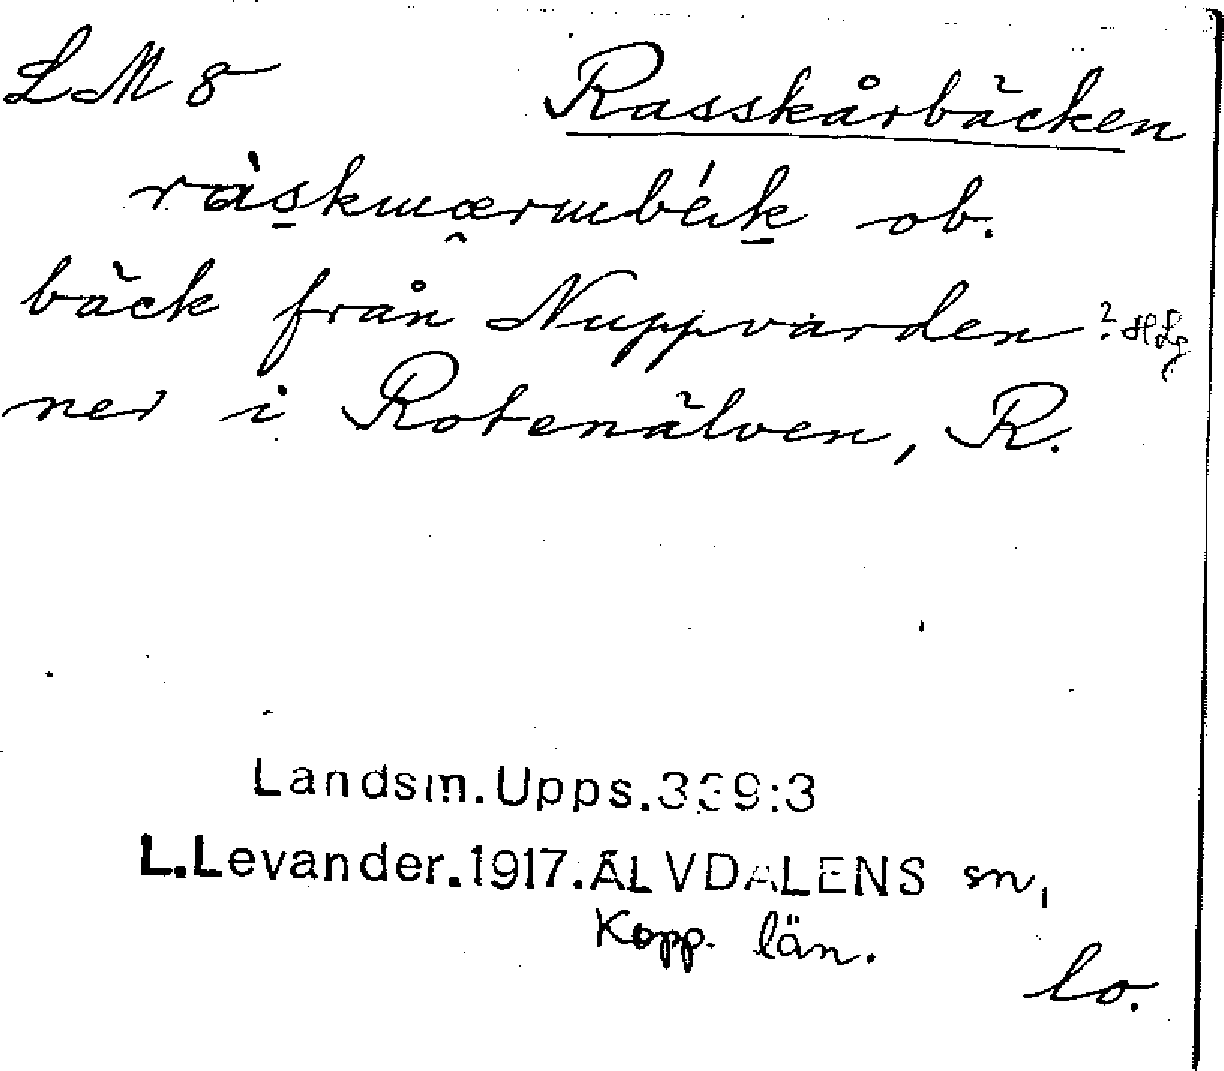 LM 8 Rasskårbäcken
ob.
bäck från Nuppvarden ? HLg
ner i Rotenälven, R.
Landsm.Upps.339:3
L.Levander.1917.ÄLVDALENS sn,
Kopp. län.
lo.